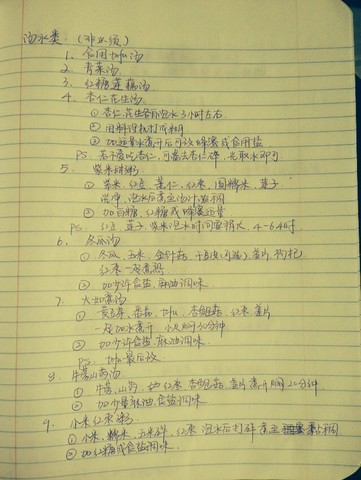 汤水类：(非必须)
1. 食用tofu汤
2. 青菜汤
3. 红糖莲藕汤
4. 杏仁花生汤
① 杏仁,花生各前泡水3小时左右
② 用料理机打成糊
③ 加适量水煮开后可放蜂蜜或食用盐
PS. 若不爱吃杏仁,可需去杏仁碎,先取水即可
5. 紫米甜粥
① 紫米,红豆,薏仁,红枣,圆糯米,莲子
洗净,泡水后煮至汤汁浓稠
② 加白糖,红糖或蜂蜜适量
PS. 红豆,莲子,紫米泡水时间要稍久,4-6小时
6. 冬瓜汤
① 冬瓜,玉米,金针菇,干豆皮(可选),姜片,枸杞
红枣一起煮熟
② 加少许食盐,麻油调味
7. 大如意汤
① 黄豆芽,番茄,tofu,杏鲍菇,红枣,姜片
一起加水煮开,小火炖30分钟
② 加少许食盐,麻油调味
PS. tofu最后放
8. 牛蒡山药汤
① 牛蒡,山药,红枣,杏鲍菇,姜片煮开焖20分钟
② 加少量麻油,食盐调味
9. 小米红枣粥
① 小米,糯米,玉米碎,红枣泡水后打碎煮至粘稠
② 加红糖或食盐调味